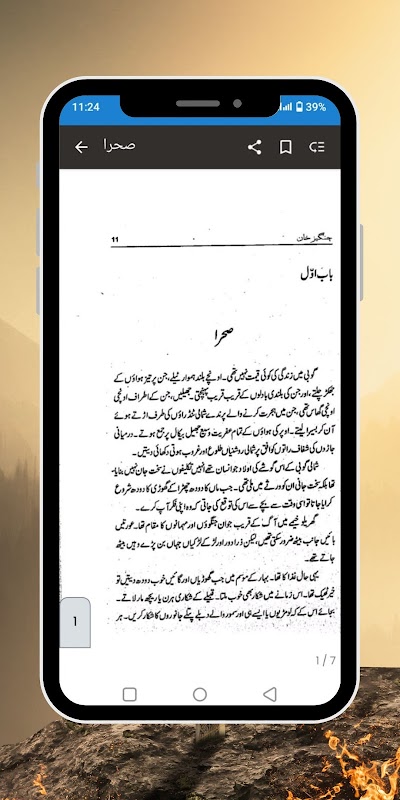 11:24
39%
صحرا
چنگیز خان
11
باب اوّل
صحرا
گوبی میں زندگی کی کوئی قیمت نہیں تھی۔ اونچے بلند ہموار ٹیلے، جن پر تیز ہواؤں کے
جھکڑ چلتے، اور جن کی بلندی بادلوں کے قریب قریب پہنچتی، جھیلیں، جن کے اطراف اونچی
اونچی گھاس تھی، جن میں ہجرت کرنے والے پرندے شمالی ٹنڈراؤں کی طرف اڑتے ہوئے
آن کر بسیرا لیتے۔ اوپر کی ہواؤں کے تمام عفریت وسیع جھیل بیکال پر جمع ہوتے۔ درمیانی
جاڑوں کی شفاف راتوں کو افق پر شمالی روشنیاں طلوع اور غروب ہوتی دکھائی دیتیں۔
شمالی گوبی کے اس گوشے کی اولادِ آدم انسان تھے انہیں تکلیفوں نے سخت جان نہیں بنایا۔
تھا بلکہ سخت جانی ان کو ورثے میں ملی تھی۔ جب ماں کا دودھ چھڑا کے گھوڑی کا دودھ شروع
کرایا جاتا تو اسی وقت سے بچے سے اس کی توقع کی جاتی کہ وہ اپنی فکر آپ کرے۔
گھریلو خیمے میں آگ کے قریب جوان جنگجوؤں اور مہمانوں کا مقام تھا۔ عورتیں
بائیں جانب بیٹھ ضرور سکتی تھیں، لیکن ذرا دور اور لڑکے لڑکیاں جہاں بن پڑے وہیں بیٹھ
جاتے تھے۔
یہی حال غذا کا تھا۔ بہار کے موسم میں جب گھوڑیاں اور گائیں خوب دودھ دیتیں تو
خیر ٹھیک تھا۔ اس زمانے میں شکار بھی خوب ملتا۔ قبیلے کے شکاری ہرن یا ریچھ مار لاتے۔
بجائے اس کے کہ لومڑیوں یا ایسے ہی اور سمور والے دبلے پتلے جانوروں کا شکار کریں۔ ہر
1
1 / 7